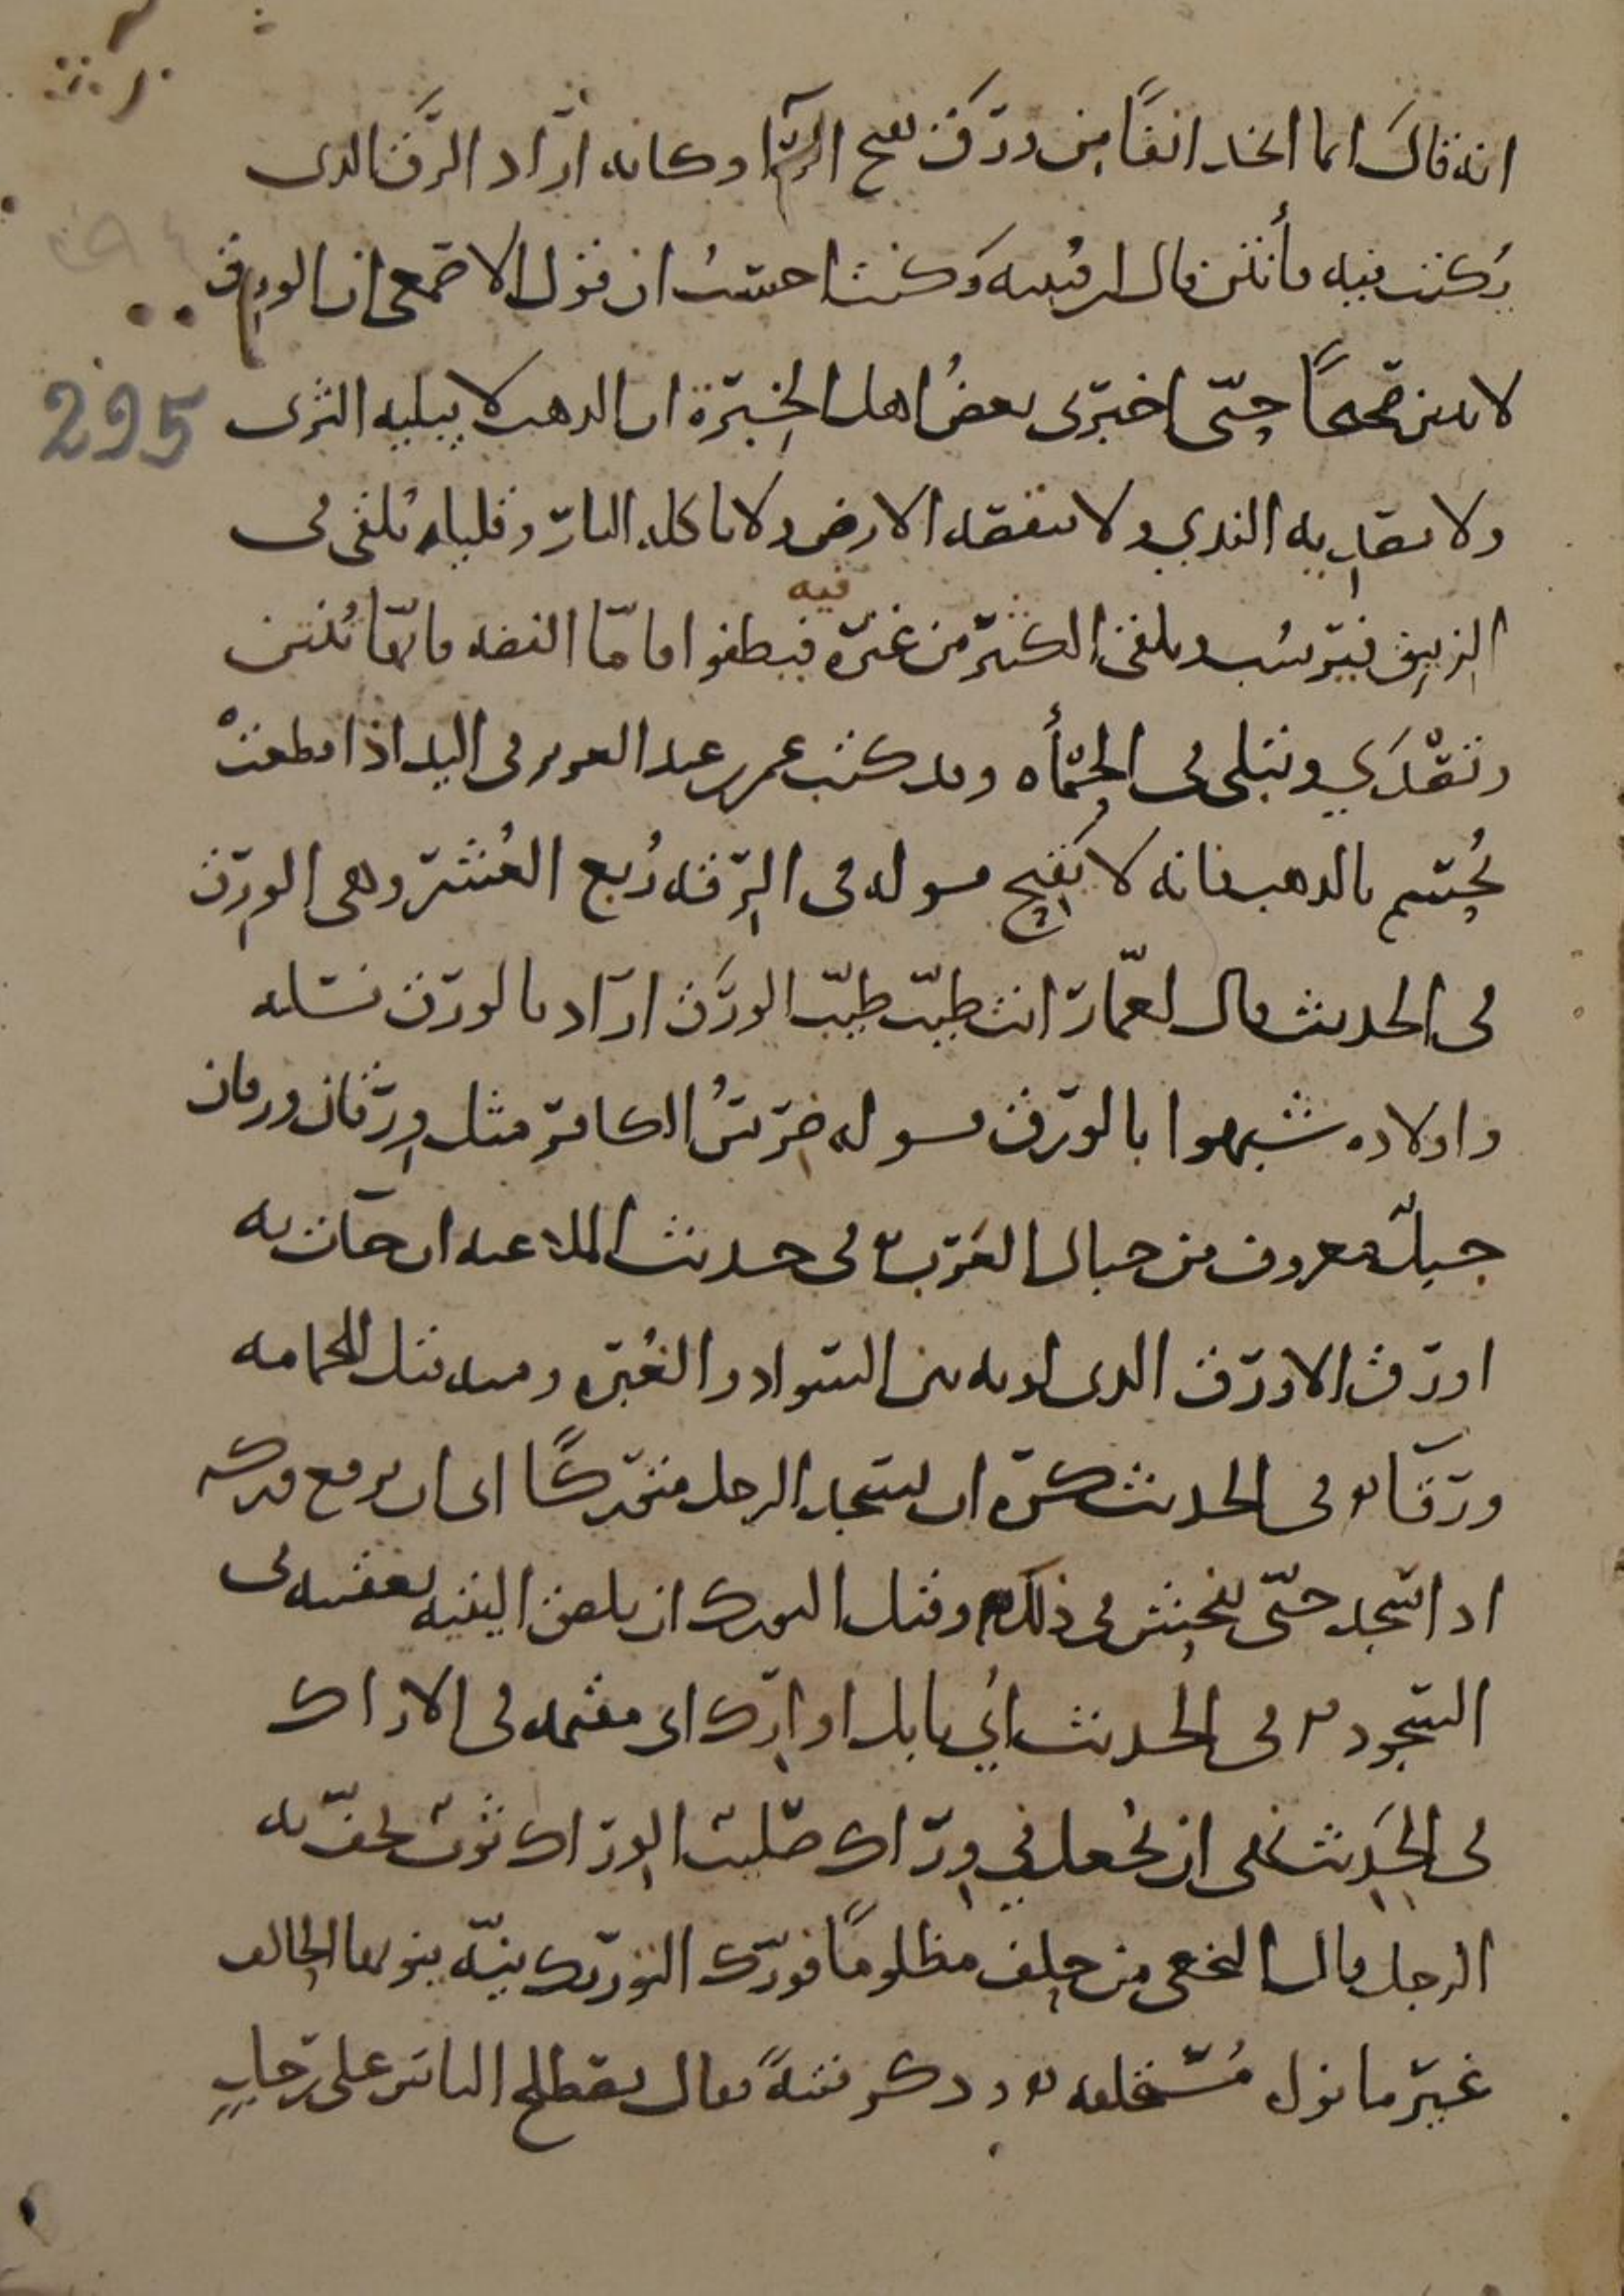 انه قال انما اتخذ انفًا من وَرَق بفتح الرآء وكانه اراد الرَّق الذي
يُكتب فيه فأنتن قال ابن قتيبه وَكنت احسبُ ان قول الاصمعي ان الورِق
لا ينتن صحيحًا حتّى اخبرني بعضُ اهل الخِبرة ان الذهب لا يبليه الثرى
ولا يصديه الندي ولا تنقصه الارض ولا تاكله النار وقليله يُلقى في
الزيبق فيرسُب ويلقى الكثير من غيره فيه فيطفوا فامّا الفضه فانّها تُنتن
وتَصْدَي وتبلى في الحمأه وقد كتب عمر بن عبد العزيز في اليد اذا قطعتْ
تُحسم بالذهب فانه لا يُقيح قوله في الرِّقه رُبع العُشر وهي الورق
في الحديث قال لعمّار انت طيّب طيّب الورَق اراد بالورق نسله
واولاده شبهوا بالورَق قوله ضِرسُ الكافر مثل وِرقان ورقان
جبلٌ معروف من جبال العَرَب في حديث الملاعنه ان جآت به
اورق الاورق الذي لونه بين السواد والغُبره ومنه قيل للحمامه
ورقآ في الحديث كره ان يسجد الرجل متورّكًا اي ان يرفع وركه
اذا سجد حتّى يفحش في ذلك وقيل التورك ان يلصق اليتيه بعقبيه في
السجود في الحديث اُتي بابل اوارك اي مقيمه في الاراك
في الحديث نهى ان تجعل في وِراك صليب الوراك ثوبٌ يحفّ به
الرحل قال النخعي من حلف مظلومًا فورّك التوريك نيّه ينويها الحالف
غير ما نوى مُستحلفه وذكر فتنةً فقال يصطلح الناس على رجلٍ
295